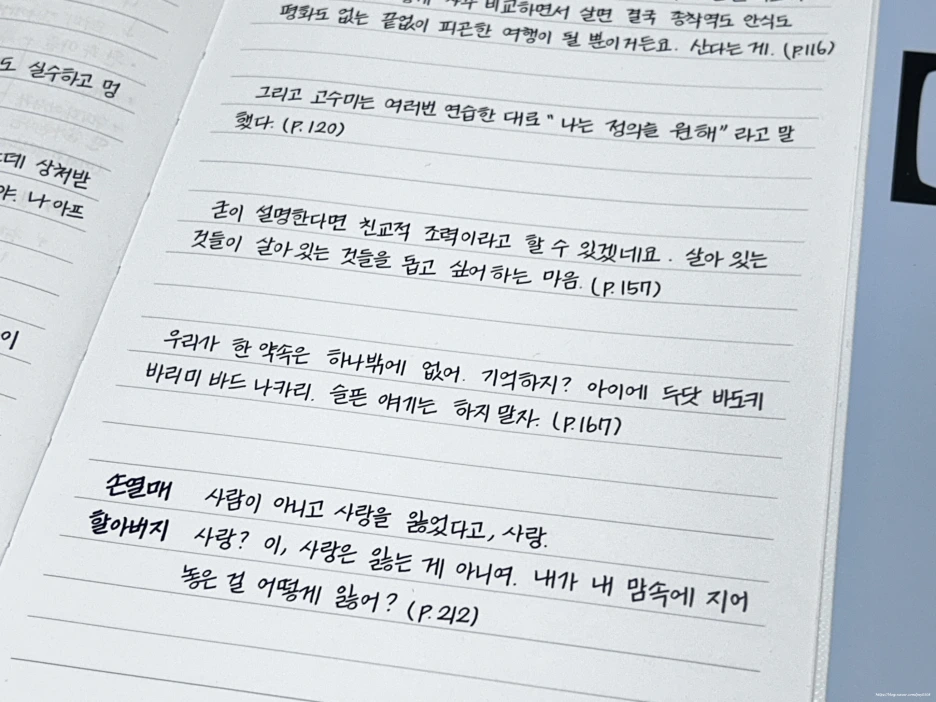 도 실수하고 멍
데 상처받
야. 나 아프
이
비교하면서 살면 결국 종착역도 안식도
평화도 없는 끝없이 피곤한 여행이 될 뿐이거든요. 산다는 게. (P.116)
그리고 고수미는 여러번 연습한 대로 "나는 정의를 원해" 라고 말
했다. (P.120)
굳이 설명한다면 친교적 조력이라고 할 수 있겠네요. 살아 있는
것들이 살아 있는 것들을 돕고 싶어 하는 마음. (P.157)
우리가 한 약속은 하나밖에 없어. 기억하지? 아이에 두닷 바도키
바리미 바드 나카리. 슬픈 얘기는 하지 말자. (P.167)
손열매 사람이 아니고 사랑을 잃었다고, 사랑.
할아버지 사랑? 이, 사랑은 잃는 게 아니여. 내가 내 맘속에 지어
놓은 걸 어떻게 잃어? (P.212)